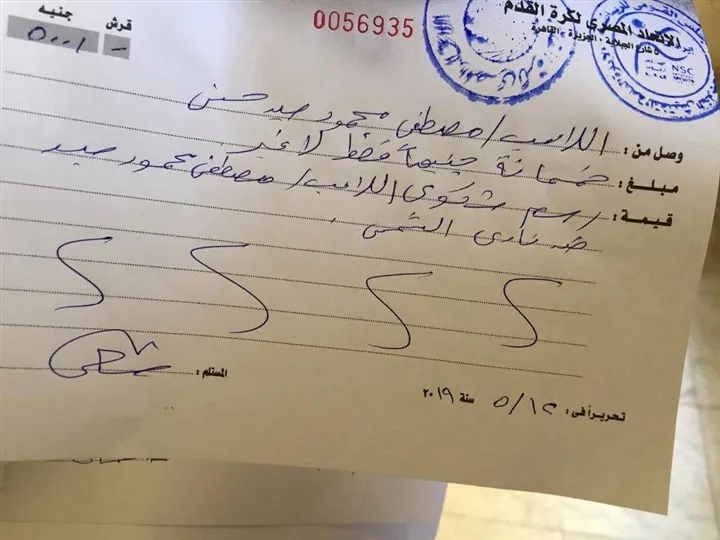 قرش جنيه
- ٥٠٠
0056935
الاتحاد المصرى لكرة القدم
شارع الجبلاية - الجزيرة - القاهرة
NSC
وصل من : اللاعب / مصطفى محمود سيد حسنى
مبلغ : خمسمائة جنيهاً فقط لا غير
قيمة : رسم شكوى اللاعب / مصطفى محمود سيد
ضد نادى الشمس .
المستلم :
تحريراً فى : ١٢ / ٥ سنة ٢٠١٩